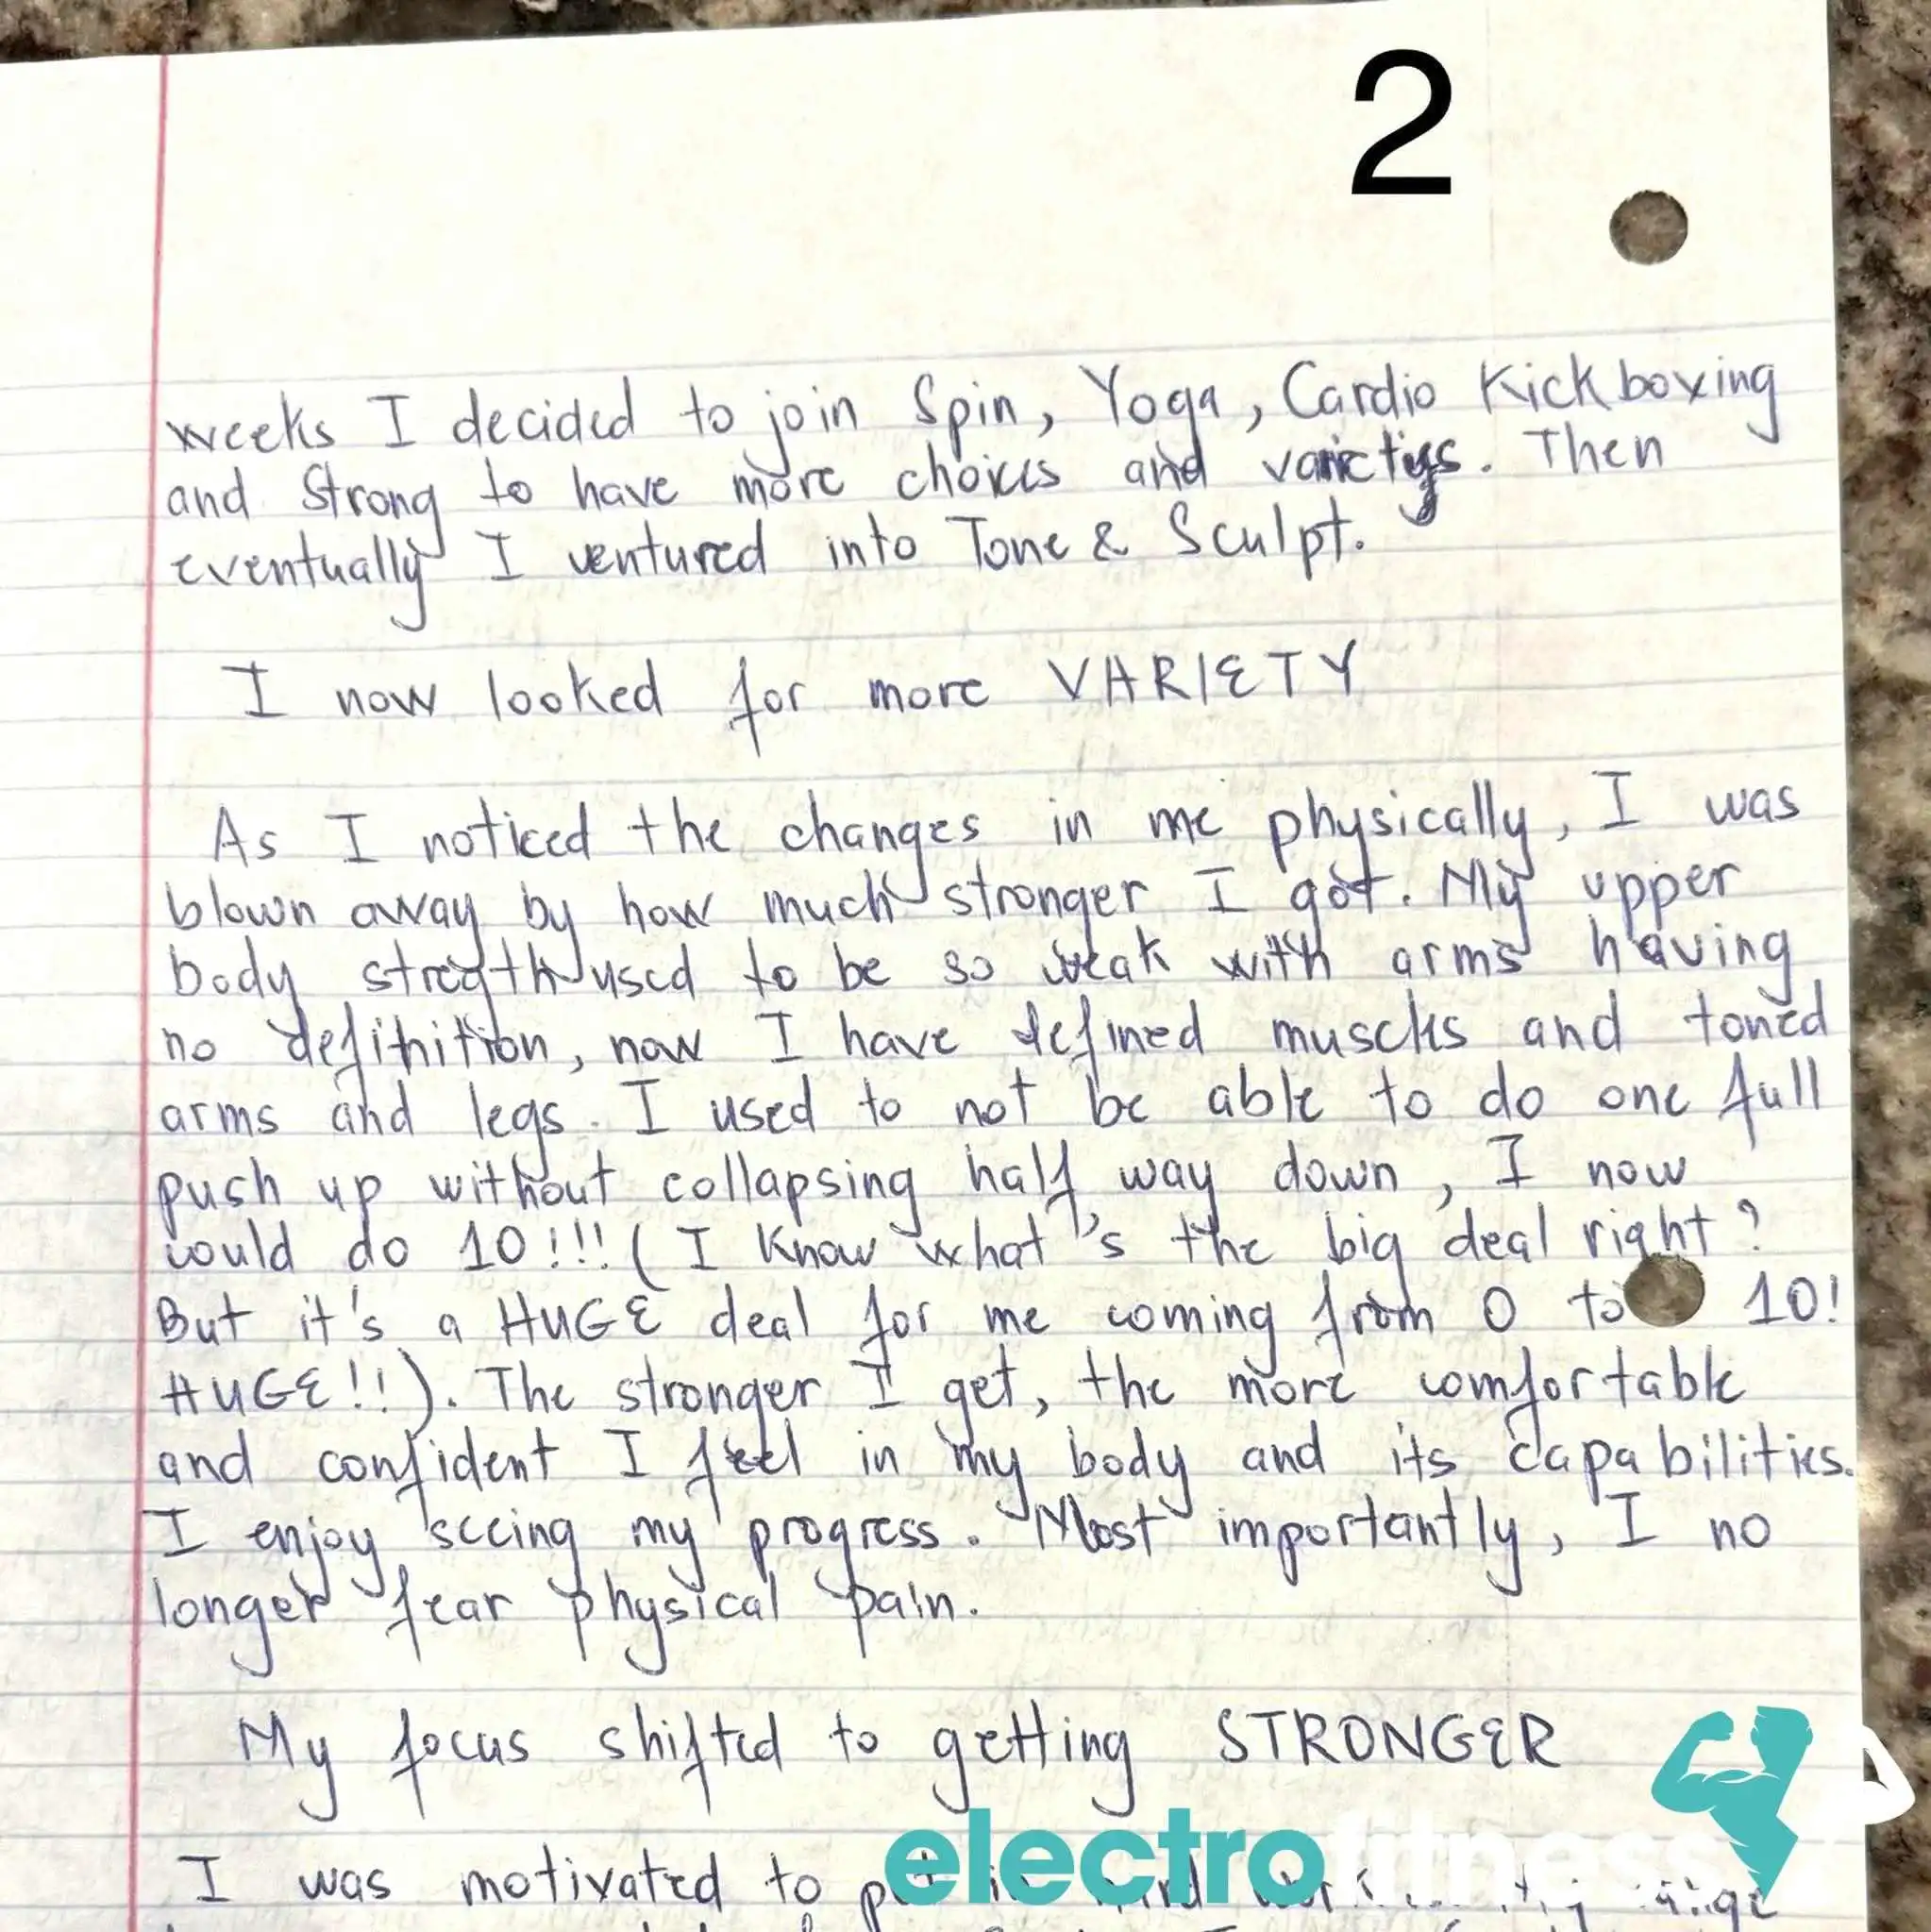 2
weeks I decided to join Spin, Yoga, Cardio Kickboxing
and Strong to have more choices and varietys. Then
eventually I ventured into Tone & Sculpt.
I now looked for more VARIETY
As I noticed the changes in me physically, I was
blown away by how much stronger I got. My upper
body stregth used to be so weak with arms having
no definition, now I have defined muscles and toned
arms and legs. I used to not be able to do one full
push up without collapsing half way down, I now
could do 10!!! (I know what's the big deal right?
But it's a HUGE deal for me coming from 0 to 10!
HUGE!!). The stronger I get, the more comfortable
and confident I feel in my body and its capabilities.
I enjoy seeing my progress. Most importantly, I no
longer fear physical pain.
My focus shifted to getting STRONGER
I was motivated to put in
electrofitness